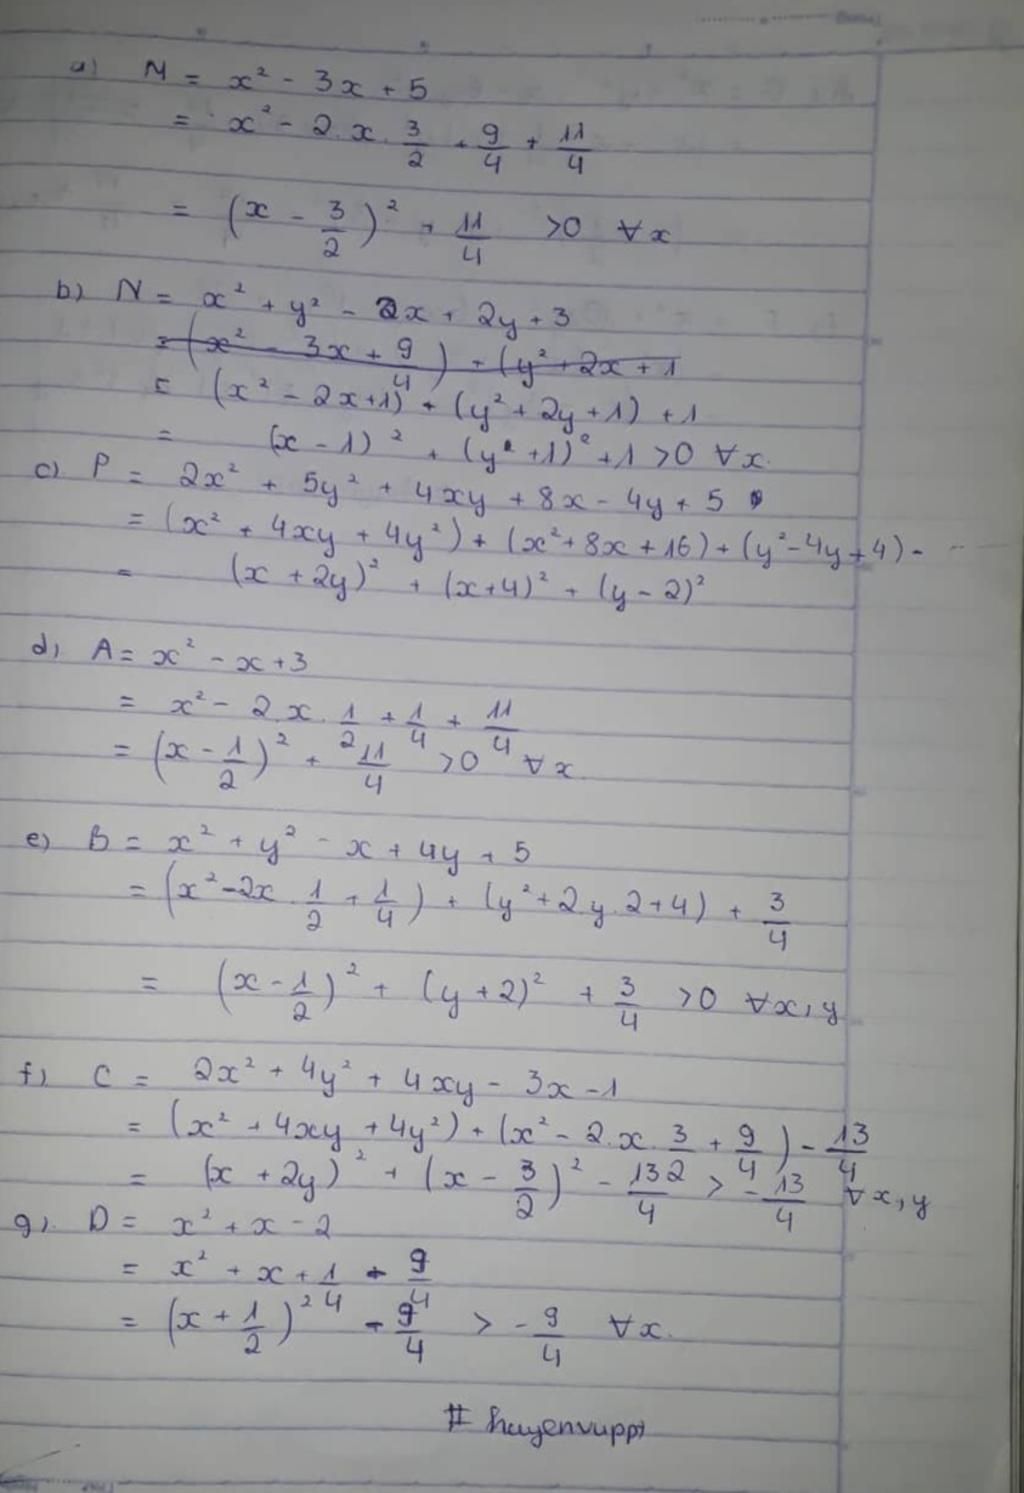 a) M = x² - 3x + 5
= x² - 2.x.3/2 + 9/4 + 11/4
= (x - 3/2)² + 11/4 >0 ∀x
b) N = x² + y² - 2x + 2y + 3
= (x² - 3x + 9/4) + (y² + 2x + 1
= (x² - 2x + 1) + (y² + 2y + 1) + 1
= (x - 1)² + (y + 1)² + 1 >0 ∀x.
c) P = 2x² + 5y² + 4xy + 8x - 4y + 5
= (x² + 4xy + 4y²) + (x² + 8x + 16) + (y² - 4y + 4) -
= (x + 2y)² + (x+4)² + (y - 2)²
d) A = x² - x + 3
= x² - 2.x.1/2 + 1/4 + 11/4
= (x - 1/2)² + 11/4 >0 ∀x.
e) B = x² + y² - x + 4y + 5
= (x² - 2x.1/2 + 1/4) + (y² + 2y.2 + 4) + 3/4
= (x - 1/2)² + (y + 2)² + 3/4 >0 ∀x, y
f) C = 2x² + 4y² + 4xy - 3x - 1
= (x² + 4xy + 4y²) + (x² - 2.x.3/2 + 9/4) - 13/4
= (x + 2y)² + (x - 3/2)² - 132/4 > -13/4 ∀x, y
g) D = x² + x - 2
= x² + x + 1/4 - 9/4
= (x + 1/2)² - 9/4 > -9/4 ∀x.